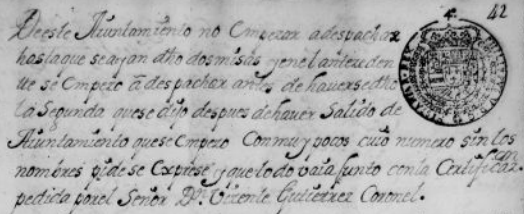 42
Deeste Auntamiento no Empezar adespachar
hastaque seaian dho dosmisas yenelantezeden
ue se Empezo â despachar antes de haversedho
la Segunda quese dijo despues dehaver Salido de
Auntamiento quese Empezo Conmuypocos cuio numero sinlos
nombres pide se Exprese, yquetodo vaia Junto conla Certificazon
pedida porel Señor Dn Vizente Gutierrez Coronel.